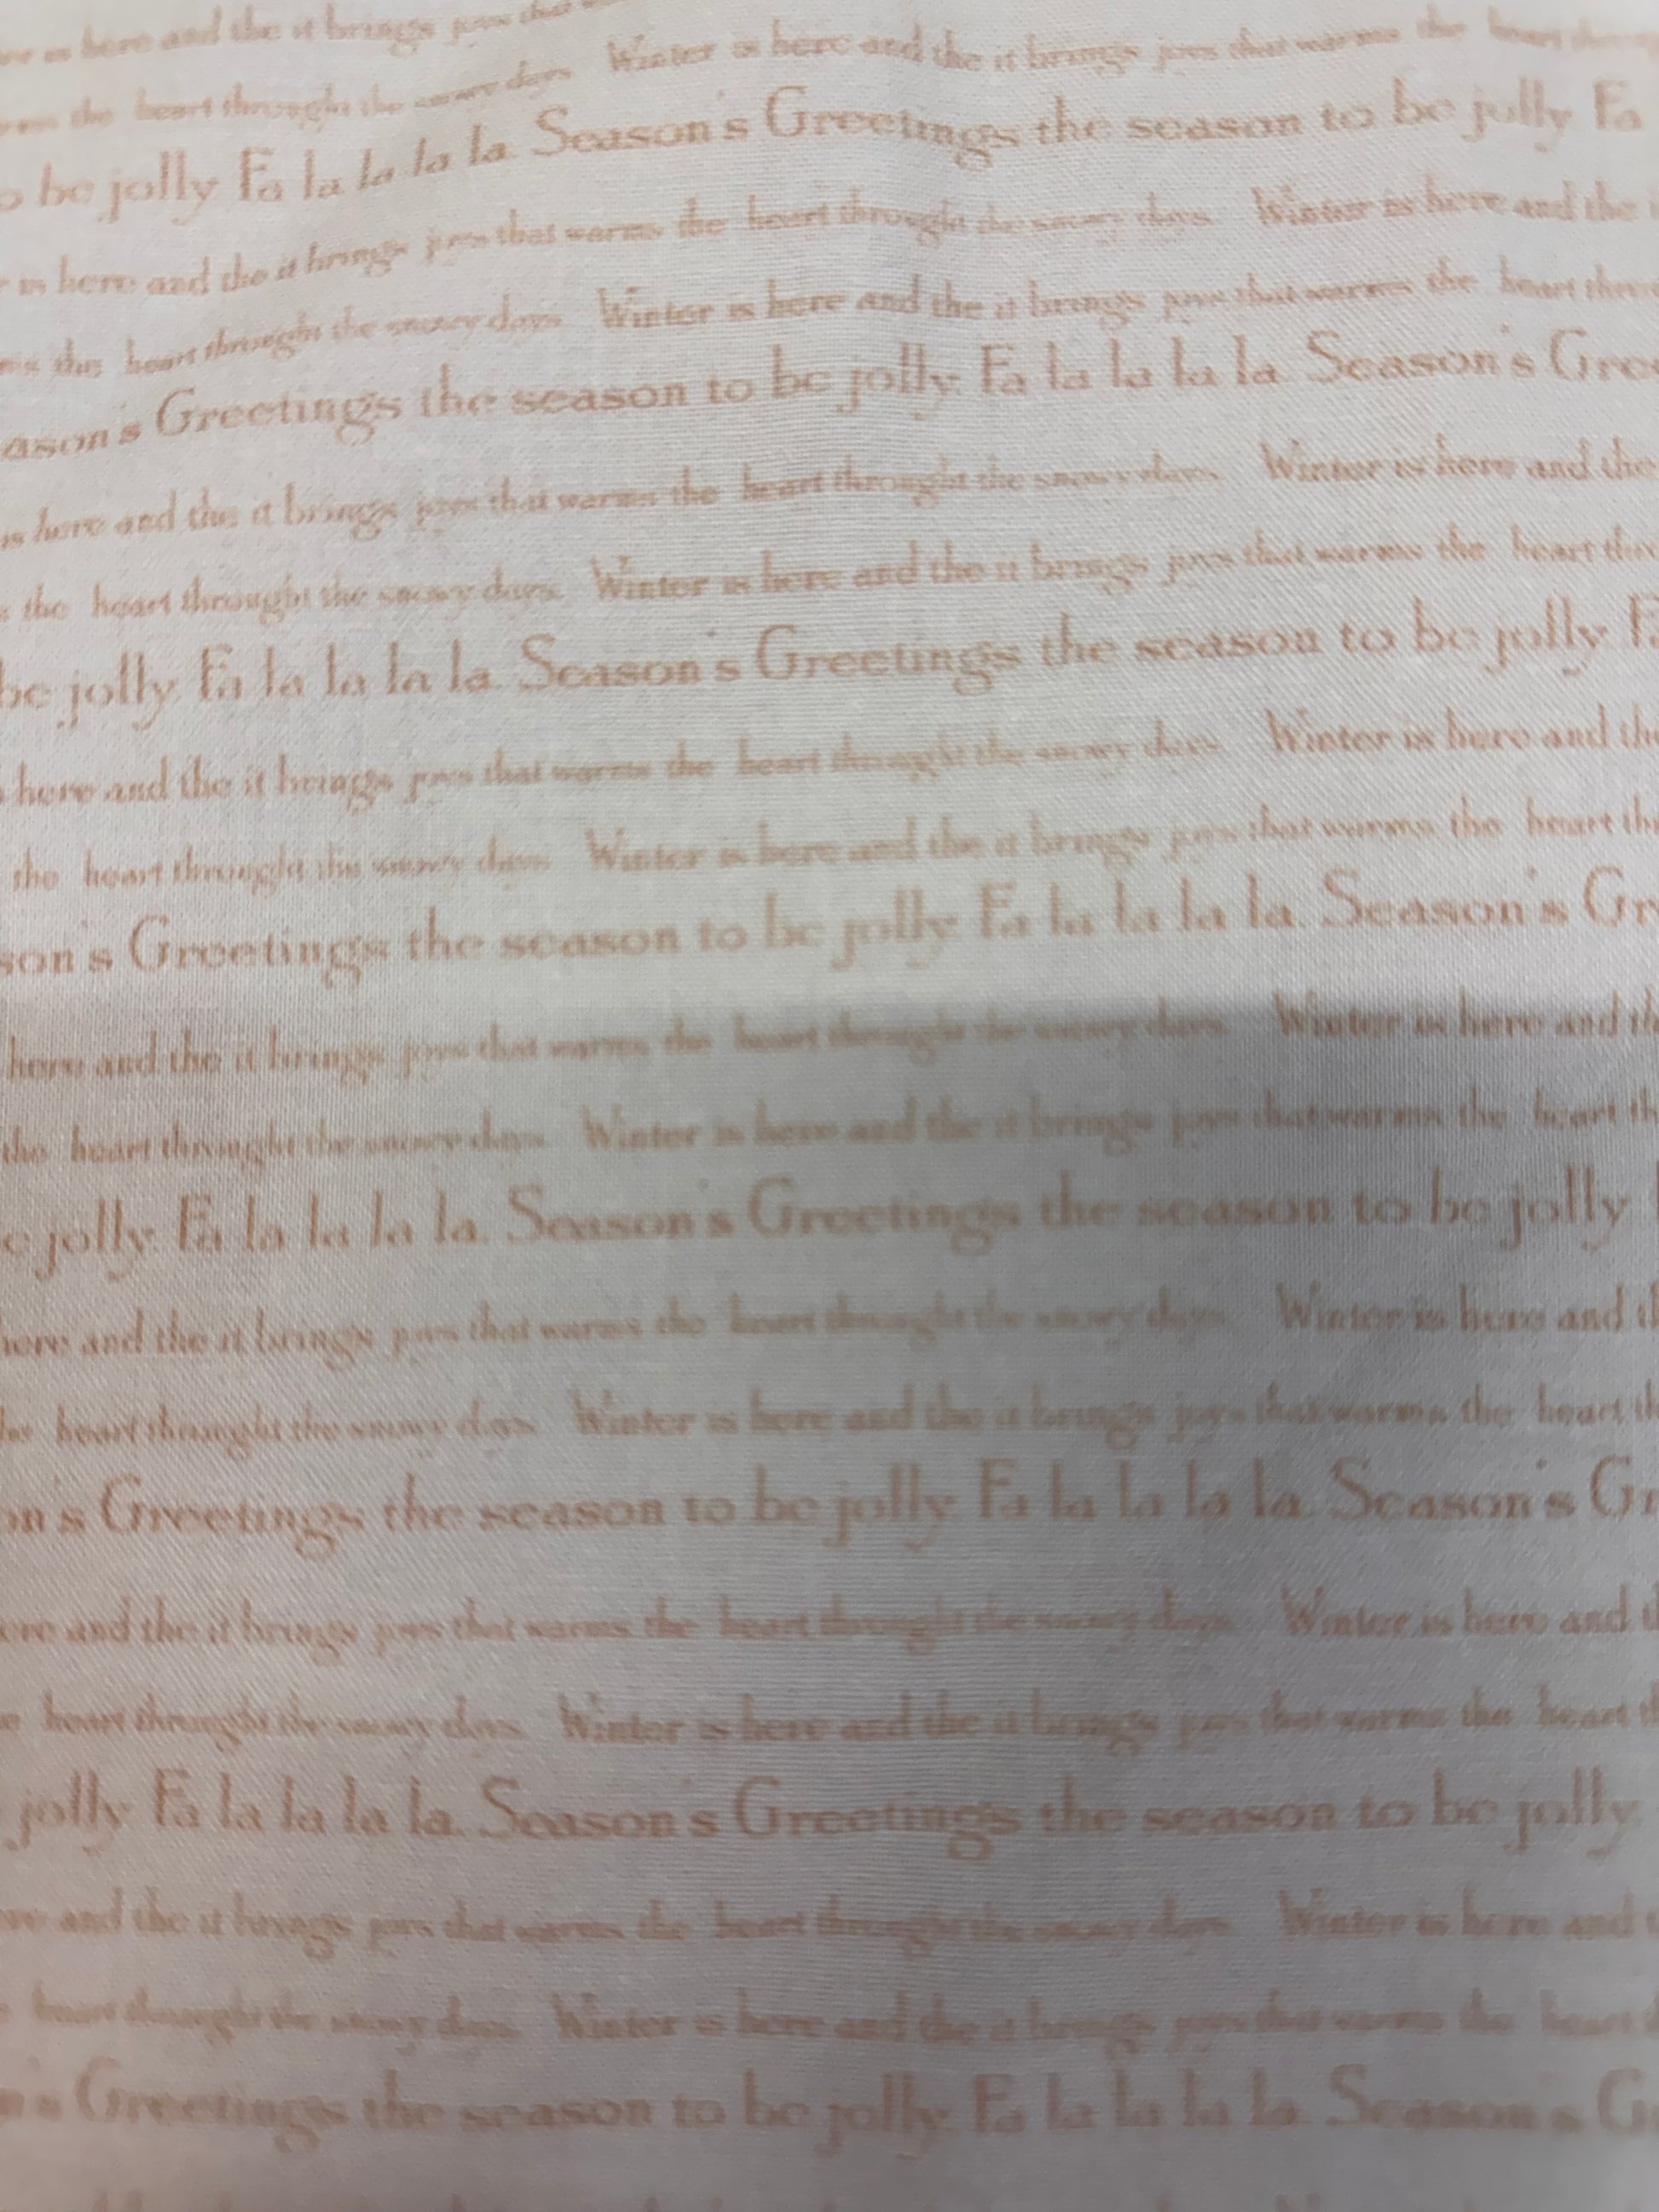 is here and the it brings joys that
the heart throught the snowy days. Winter is here and the it brings joys that warms the heart
to be jolly. Fa la la la la. Season's Greetings the season to be jolly. Fa
is here and the it brings joys that warms the heart throught the snowy days. Winter is here and the
the heart throught the snowy days. Winter is here and the it brings joys that warms the heart
Greetings the season to be jolly. Fa la la la la. Season's Gree
is here and the it brings joys that warms the heart throught the snowy days. Winter is here and the
the heart throught the snowy days. Winter is here and the it brings joys that warms the heart
be jolly. Fa la la la la. Season's Greetings the season to be jolly.
here and the it brings joys that warms the heart throught the snowy days. Winter is here and the
the heart throught the snowy days. Winter is here and the it brings joys that warms the heart
son's Greetings the season to be jolly. Fa la la la la. Season's Gr
here and the it brings joys that warms the heart throught the snowy days. Winter is here and
the heart throught the snowy days. Winter is here and the it brings joys that warms the heart
jolly. Fa la la la la. Season's Greetings the season to be jolly
here and the it brings joys that warms the heart throught the snowy days. Winter is here and
heart throught the snowy days. Winter is here and the it brings joys that warms the heart
on's Greetings the season to be jolly. Fa la la la la. Season's Gr
ere and the it brings joys that warms the heart throught the snowy days. Winter is here and
heart throught the snowy days. Winter is here and the it brings joys that warms the heart
jolly. Fa la la la la. Season's Greetings the season to be jolly.
and the it brings joys that warms the heart throught the snowy days. Winter is here and
heart throught the snowy days. Winter is here and the it brings joys that warms the heart
Greetings the season to be jolly. Fa la la la la. Season's G